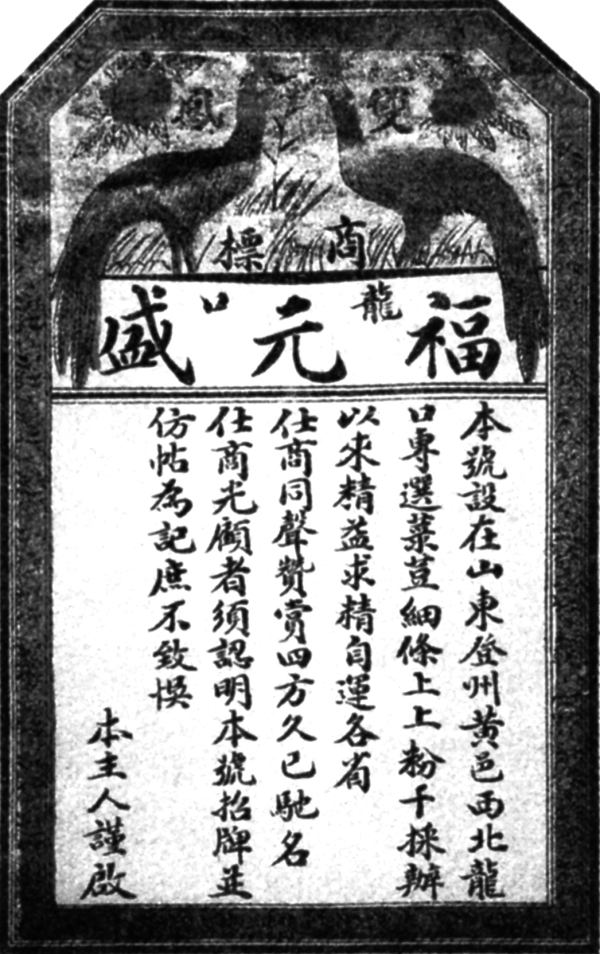 雙鳳
商標
龍口
福元盛
本號設在山東登州黃邑西北龍
口專選菉荳細條上上粉干採辦
以來精益求精自運各省
仕商同聲贊賞四方久已馳名
仕商光顧者須認明本號招牌並
仿帖為記庶不致悞
本主人謹啟